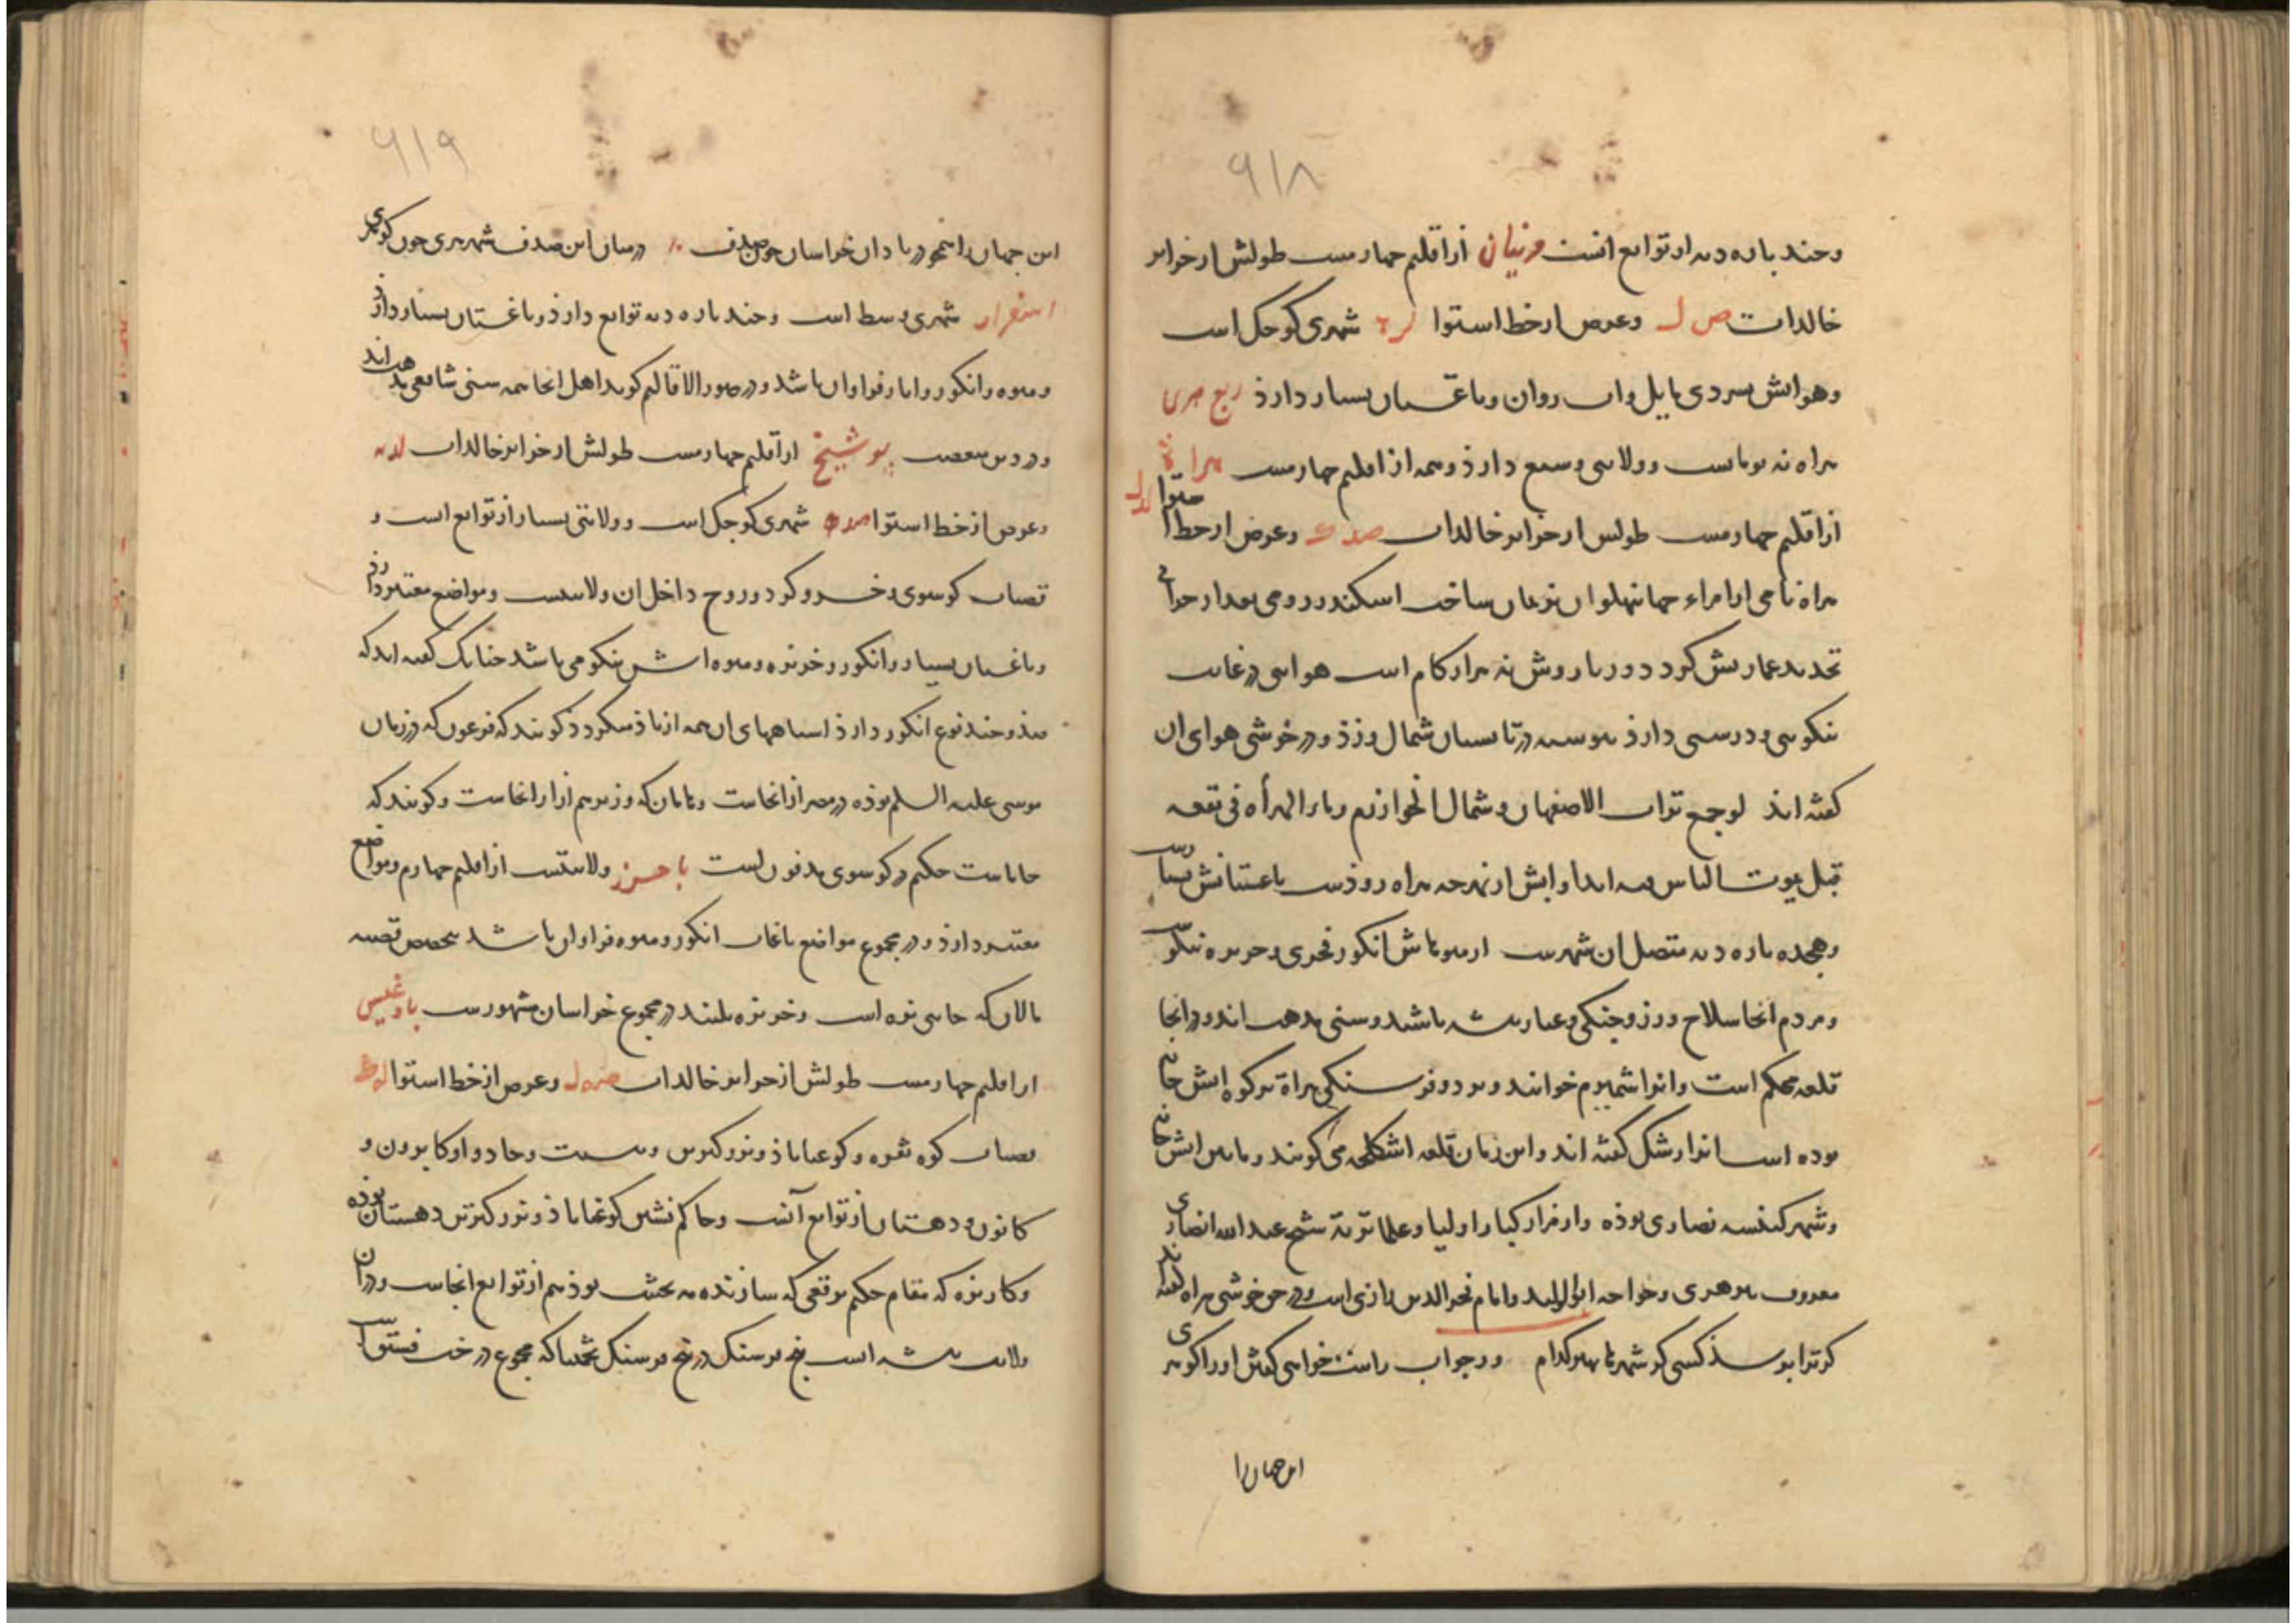 ۶۱۸
وچند پاره دیه از توابع انست فرنیان از اقلیم چهارمست طولش از خرایر
خالدات ص ل وعرض از خط استوا له شهری کوچک است
وهوایش بسردی مایل واب روان وباغستان بسیار دارذ ربع هری
هراه نه تومانست وولایتی وسیع دارذ وهمه از اقلیم چهارمست هراة
از اقلیم چهارمست طولش از خرایر خالدات وعرض از خط استوا لد ل
هراه نامی از امراء جهانپهلوان نریمان ساخت اسکندر رومی بعد از خرابی
تجدید عمارتش کرد دور باروش نه هزار کام است هوایی در غایت
نیکویی ودرستی دارذ پیوسته در تابستان شمال وزذ ودر خوشی هوای ان
کفته اند لو جمع تراب الاصفهان وشمال الخوارزم وماء الهراه فی بقعه
قبل یموت الناس فیه ابدا وابش از نهرچه هراه روذست باغستانش بسیارست
وهجده پاره دیه متصل ان شهرست از میوهاش انکور فخری وخربزه نیکوست
ومردم انجا سلاح ورز وجنکی وعیار پیشه باشند وسنی مذهب اند ودر انجا
قلعه محکم است وانرا شمیرم خوانند وبر دو فرسنکی هراة بر کوه اتش خانه
بوده است انرا رشک کفته اند واین زمان قلعه اشکلجه می کویند ومابین اتش خانه
وشهر کنیسه نصاری بوذه واز مزار کبار اولیا وعلما تربة شیخ عبد الله انصاری
معروف به پیر هری وخواجه ابو الولید وامام فخر الدین رازی است ودر حق خوشی هراه کفته اند
کر ترا پرسذ کسی کز شهرها بهتر کدام ور جواب راست خواهی کفتن او را کو هری
این جهان را
۶۱۹
این جهان را همچو دریا دان خراسان چون صدف در میان این صدف شهر هری چون کوهری
اسفزار شهری وسط است وچند پاره دیه توابع دارذ وباغستان بسیار دارذ
ومیوه وانکور وانار فراوان باشد ودر صور الاقالیم کوید اهل انجا همه سنی شافعی مذهب اند
ودر دین متعصب پوشیخ از اقلیم چهارمست طولش از خرایر خالدات
وعرض از خط استوا شهری کوچک است وولایتی بسیار از توابع است و
قصبات کوسوی وخسروکرد وروح داخل ان ولایتست ومواضع معتبر دارذ
وباغستان بسیار وانکور وخربزه ومیوه اش نیکو می باشد چنانک کفته اند که
صذ وچند نوع انکور دارذ اسیاهای ان همه از باذ میکردذ کویند که فرعون که در زمان
موسی علیه السلم بوذه در مصر از انجاست وهامان که وزیرهم از انجاست وکویند که
حکیم در کوسوی مدفون است باخرز ولایتست از اقلیم چهارم ومواضع
معتبر دارذ ودر مجموع مواضع باغات انکور ومیوه فراوان باشد بتخصیص قصبه
مالان که جایی نزه است وخربزه بلند در مجموع خراسان مشهورست بادغیس
از اقلیم چهارمست طولش از خرایر خالدات صه ل وعرض از خط استوا
قصبات کوه نقره وکوغناباذ وبزرکترین وبست وجادو اوکابرون و
کالون ودهستان از توابع آنست وحاکم نشین کوغناباذ وبزرکترین دهستان بوذه
وکاریزه که مقام حکیم برقعی که سازنده مه نخشب بوذ هم از توابع انجاست ودر ان
ولایت بیشه است پنج فرسنک در پنج فرسنک تخمینا که مجموع درخت فستق است